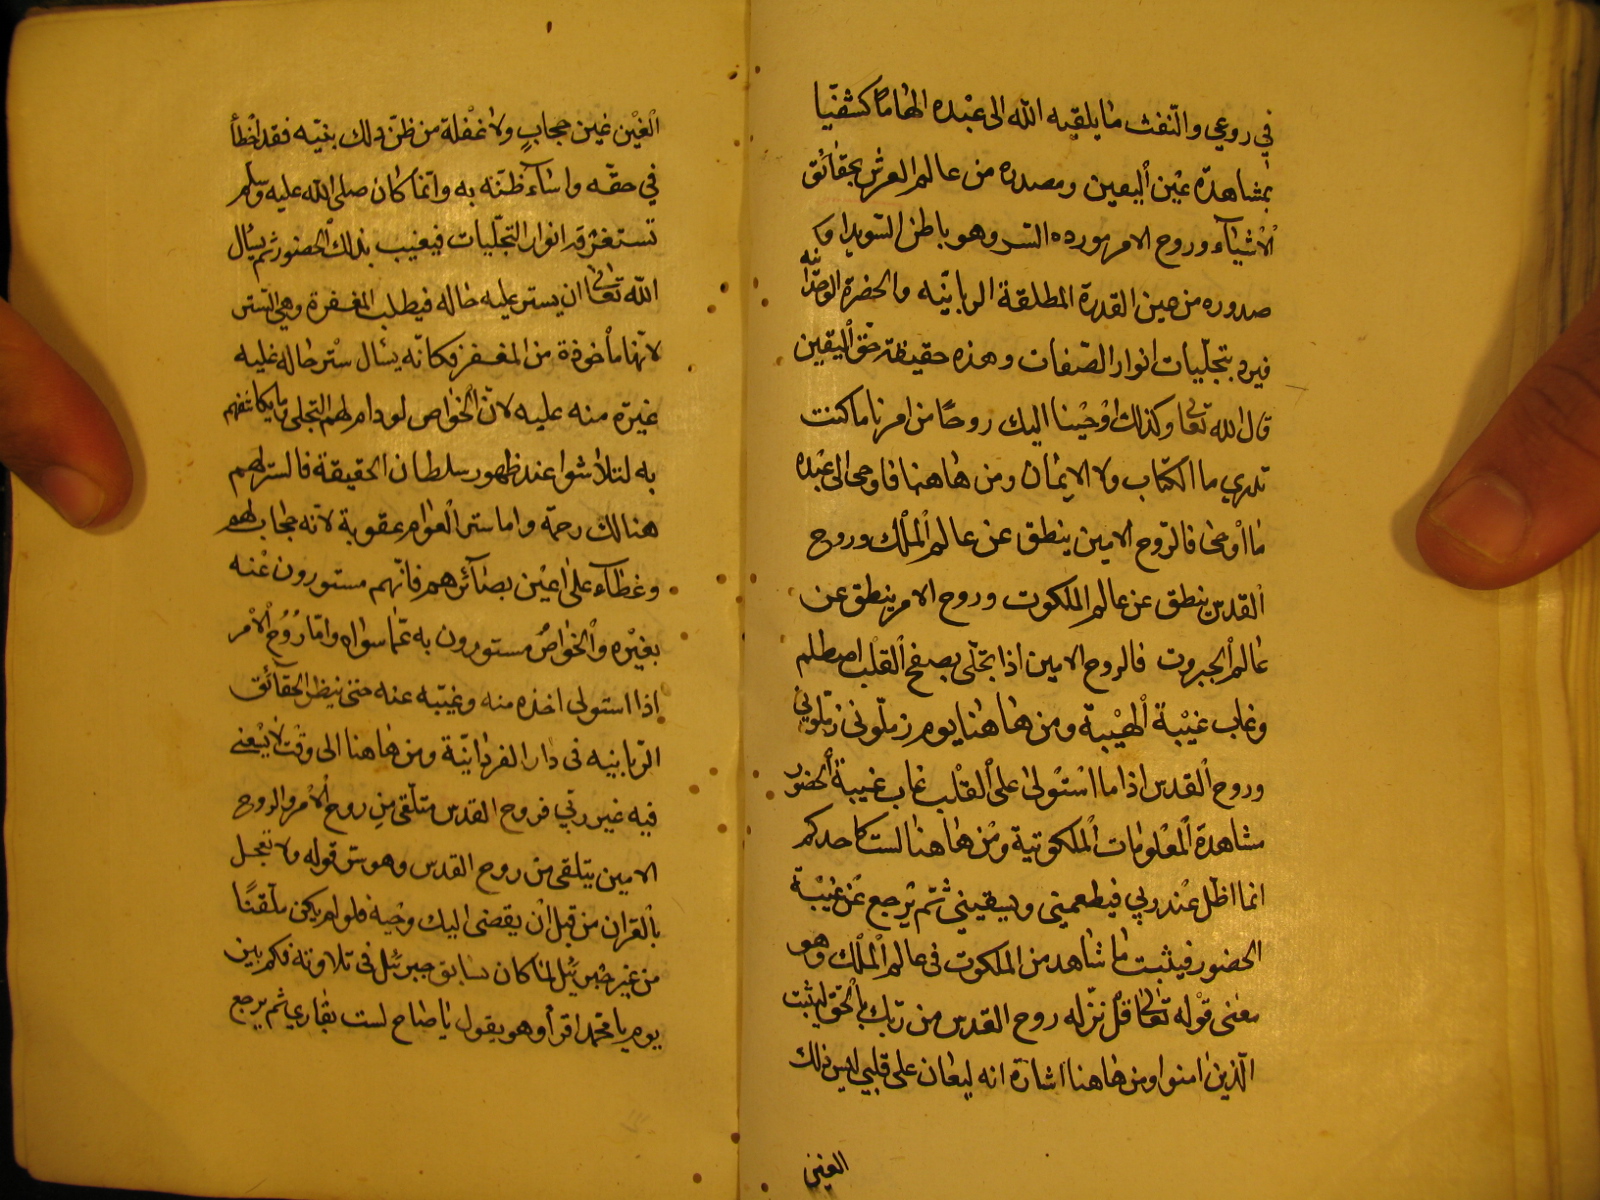 في روعي والنّفث ما يلقيه الله الى عبْده الهاما كشفيّا
بمشاهدة عين اليقين ومصدره من عالم العرش بحقائق
الاشيآء وروح الامر مورده السر وهو باطن السويدا و
صدوره من عين القدرة المطلقة الربانيّه والحضرة الوحدانيه
فيرد بتجلّيات انوار الصّفات وهذه حقيقة حقّ اليقين
قال الله تعالى وكذلك اوحينا اليك روحًا من امرنا ما كنت
تدري ما الكتاب ولا الايمان ومن هاهنا فاوحى الى عبْده
ما اوحى فالرّوح الامين ينطق عن عالم الملك وروح
القدس ينطق عن عالم الملكوت وروح الامر ينطق عن
عالم الجبروت فالروح الامين اذا تجلّى بصفح القلب اصطلم
وغاب غيبة الهيبة ومن هاهنا يوم زمّلونى زمّلوني
وروح القدس اذا ما استولى على القلب غاب غيبة الحضور
مشاهدة المعلومات الملكوتية ومن هاهنا لست كاحدكم
انما اظلّ عند ربي فيطعمني ويسقيني ثم يرجع عن غيبة
الحضور فيثبت ما شاهد من الملكوت فى عالم الملك وهو
معنى قوله تعالى قل نزّله روح القدس من ربك بالحق ليثبت
الّذين امنوا ومن هاهنا اشارة انه ليغان على قلبي ليس ذلك
الغين
الغين غين حجابٍ ولا غفلة من ظنّ ذلك بنبيّه فقد اخطأ
في حقّه واسآء ظنّه به وانّما كان صلى الله عليه وسلم
تستغرقه انوار التجلّيات فيغيب بذلك الحضور ثم يسأل
الله تعالى ان يستر عليه حاله فيطلب المغفرة وهي التستر
لانّها مأخوذة من المغفر فكانّه يسأل ستر حاله عليه
غيرة منه عليه لان الخواص لو دام لهم التجلى بما يكاشفهم
به لتلاشوا عند ظهور سلطان الحقيقة فالستر لهم
هنالك رحمة واما ستر العوام عقوبة لانه حجاب لهم
وغطآء على اعين بصآئرهم فانّهم مستورون عنه
بغيره والخواصُ مستورون به عمّا سواه وامّا رُوُح الامر
اذا استولى اخذه منه وغيّبه عنه حتى ينظر الحقآئق
الرّبانيه فى دار الفردانيّة ومن هاهنا الى وقت لا يسعنى
فيه غير ربّي فروح القدس متلقى من روح الامر والروح
الامين يتلقى من روح القدس وهو سرّ قوله ولا تعجل
بالقران من قبل ان يقضى اليك وحيه فلو لم يكن متلقنًا
من غير جبرئيل لما كان سابق جبرئيل فى تلاوته فكم بين
يوم يا محمّد اقرأ وهو يقول يا صاح لست بقاري ثم يرجع